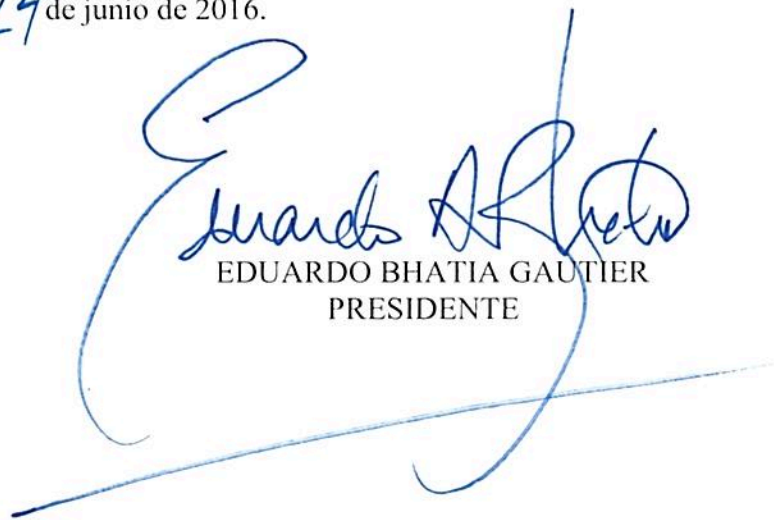 de junio de 2016.
Eduardo A Bhatia
EDUARDO BHATIA GAUTIER
PRESIDENTE